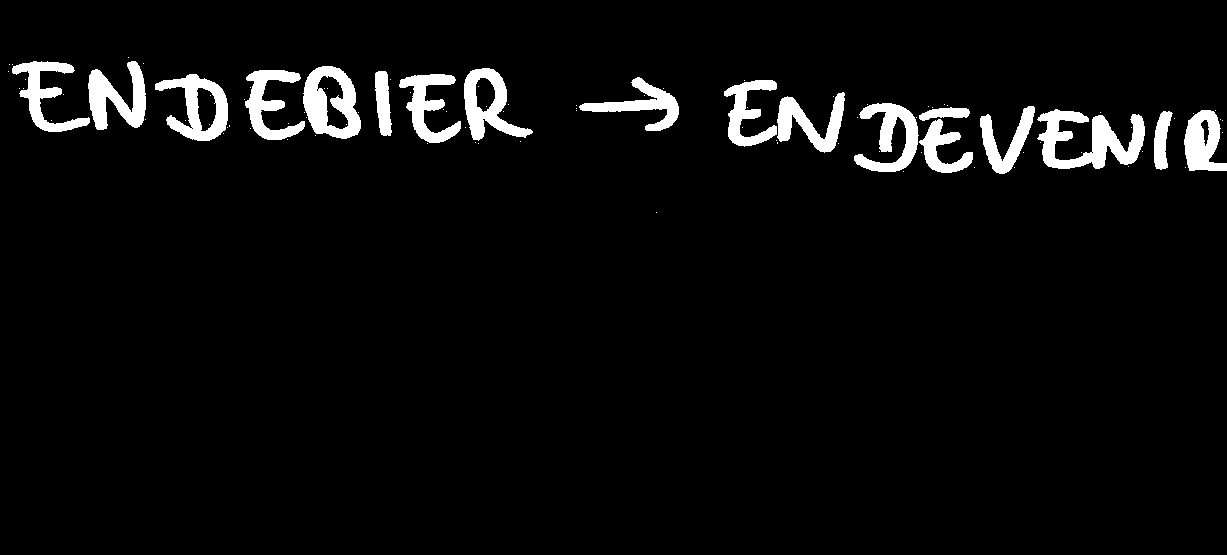 ENDEBIER → ENDEVENIR